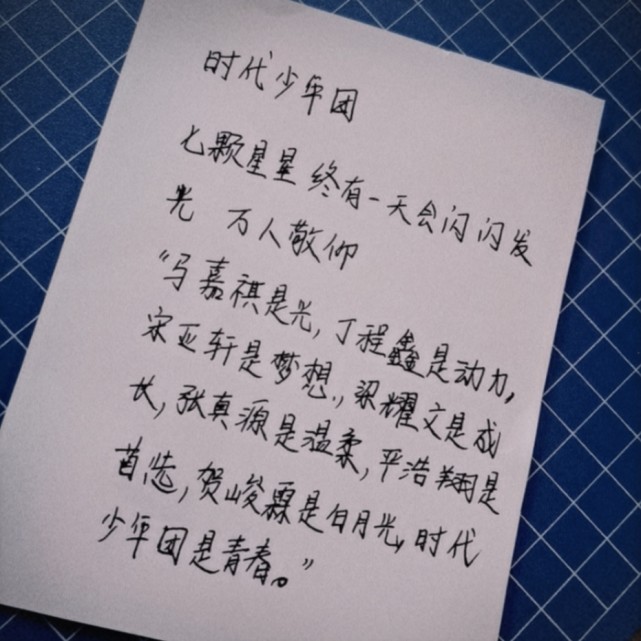 时代少年团
七颗星星 终有一天会闪闪发
光 万人敬仰
“马嘉祺是光，丁程鑫是动力，
宋亚轩是梦想，刘耀文是成
长，张真源是温柔，严浩翔是
首选，贺峻霖是白月光，时代
少年团是青春。”